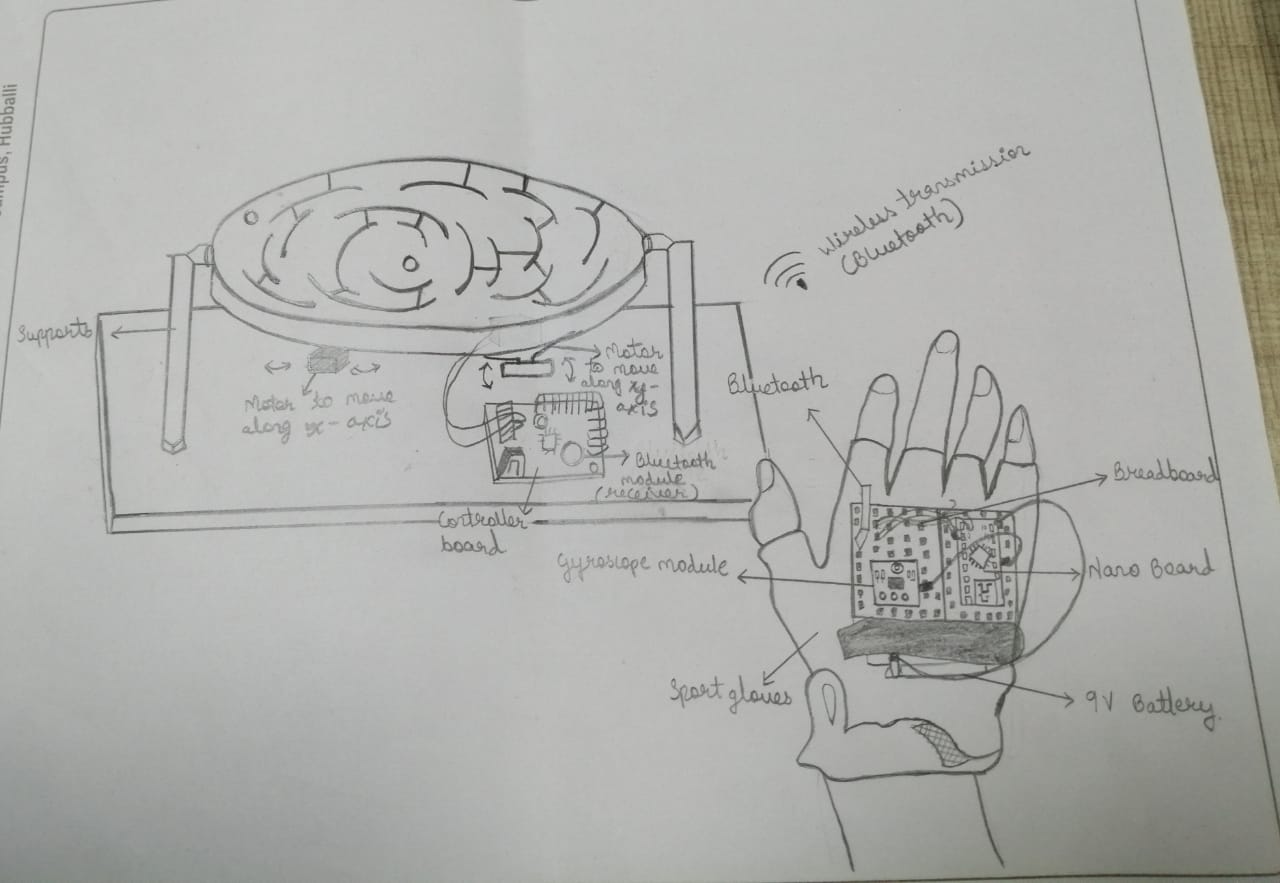 ampus, Hubballi
Wireless transmission
(Bluetooth)
Supports
Motor
to move
along xy-
axis
Motor to move
along yx-axis
Bluetooth
Bluetooth
module
(receiver)
Breadboard
Controller
board
Gyroscope module
Nano Board
Sport gloves
9V Battery.